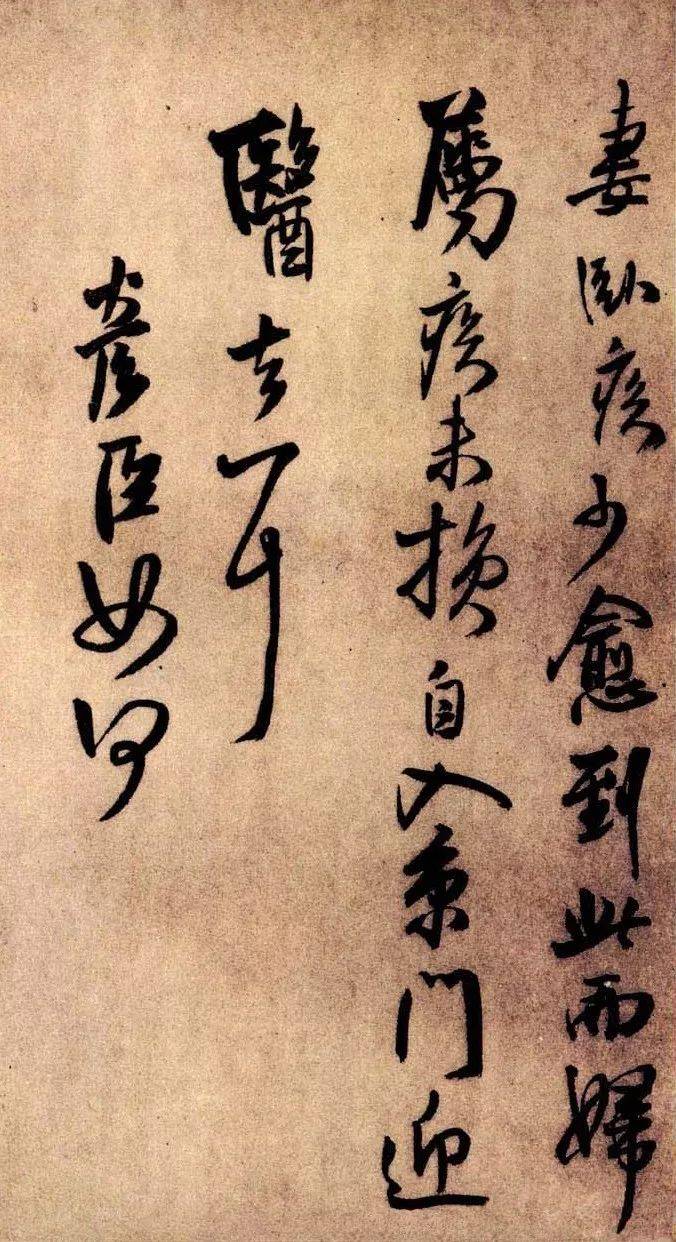 妻卧疾少愈到此兩婦
薦疾未損自入京門迎
醫去耳
彥臣如何